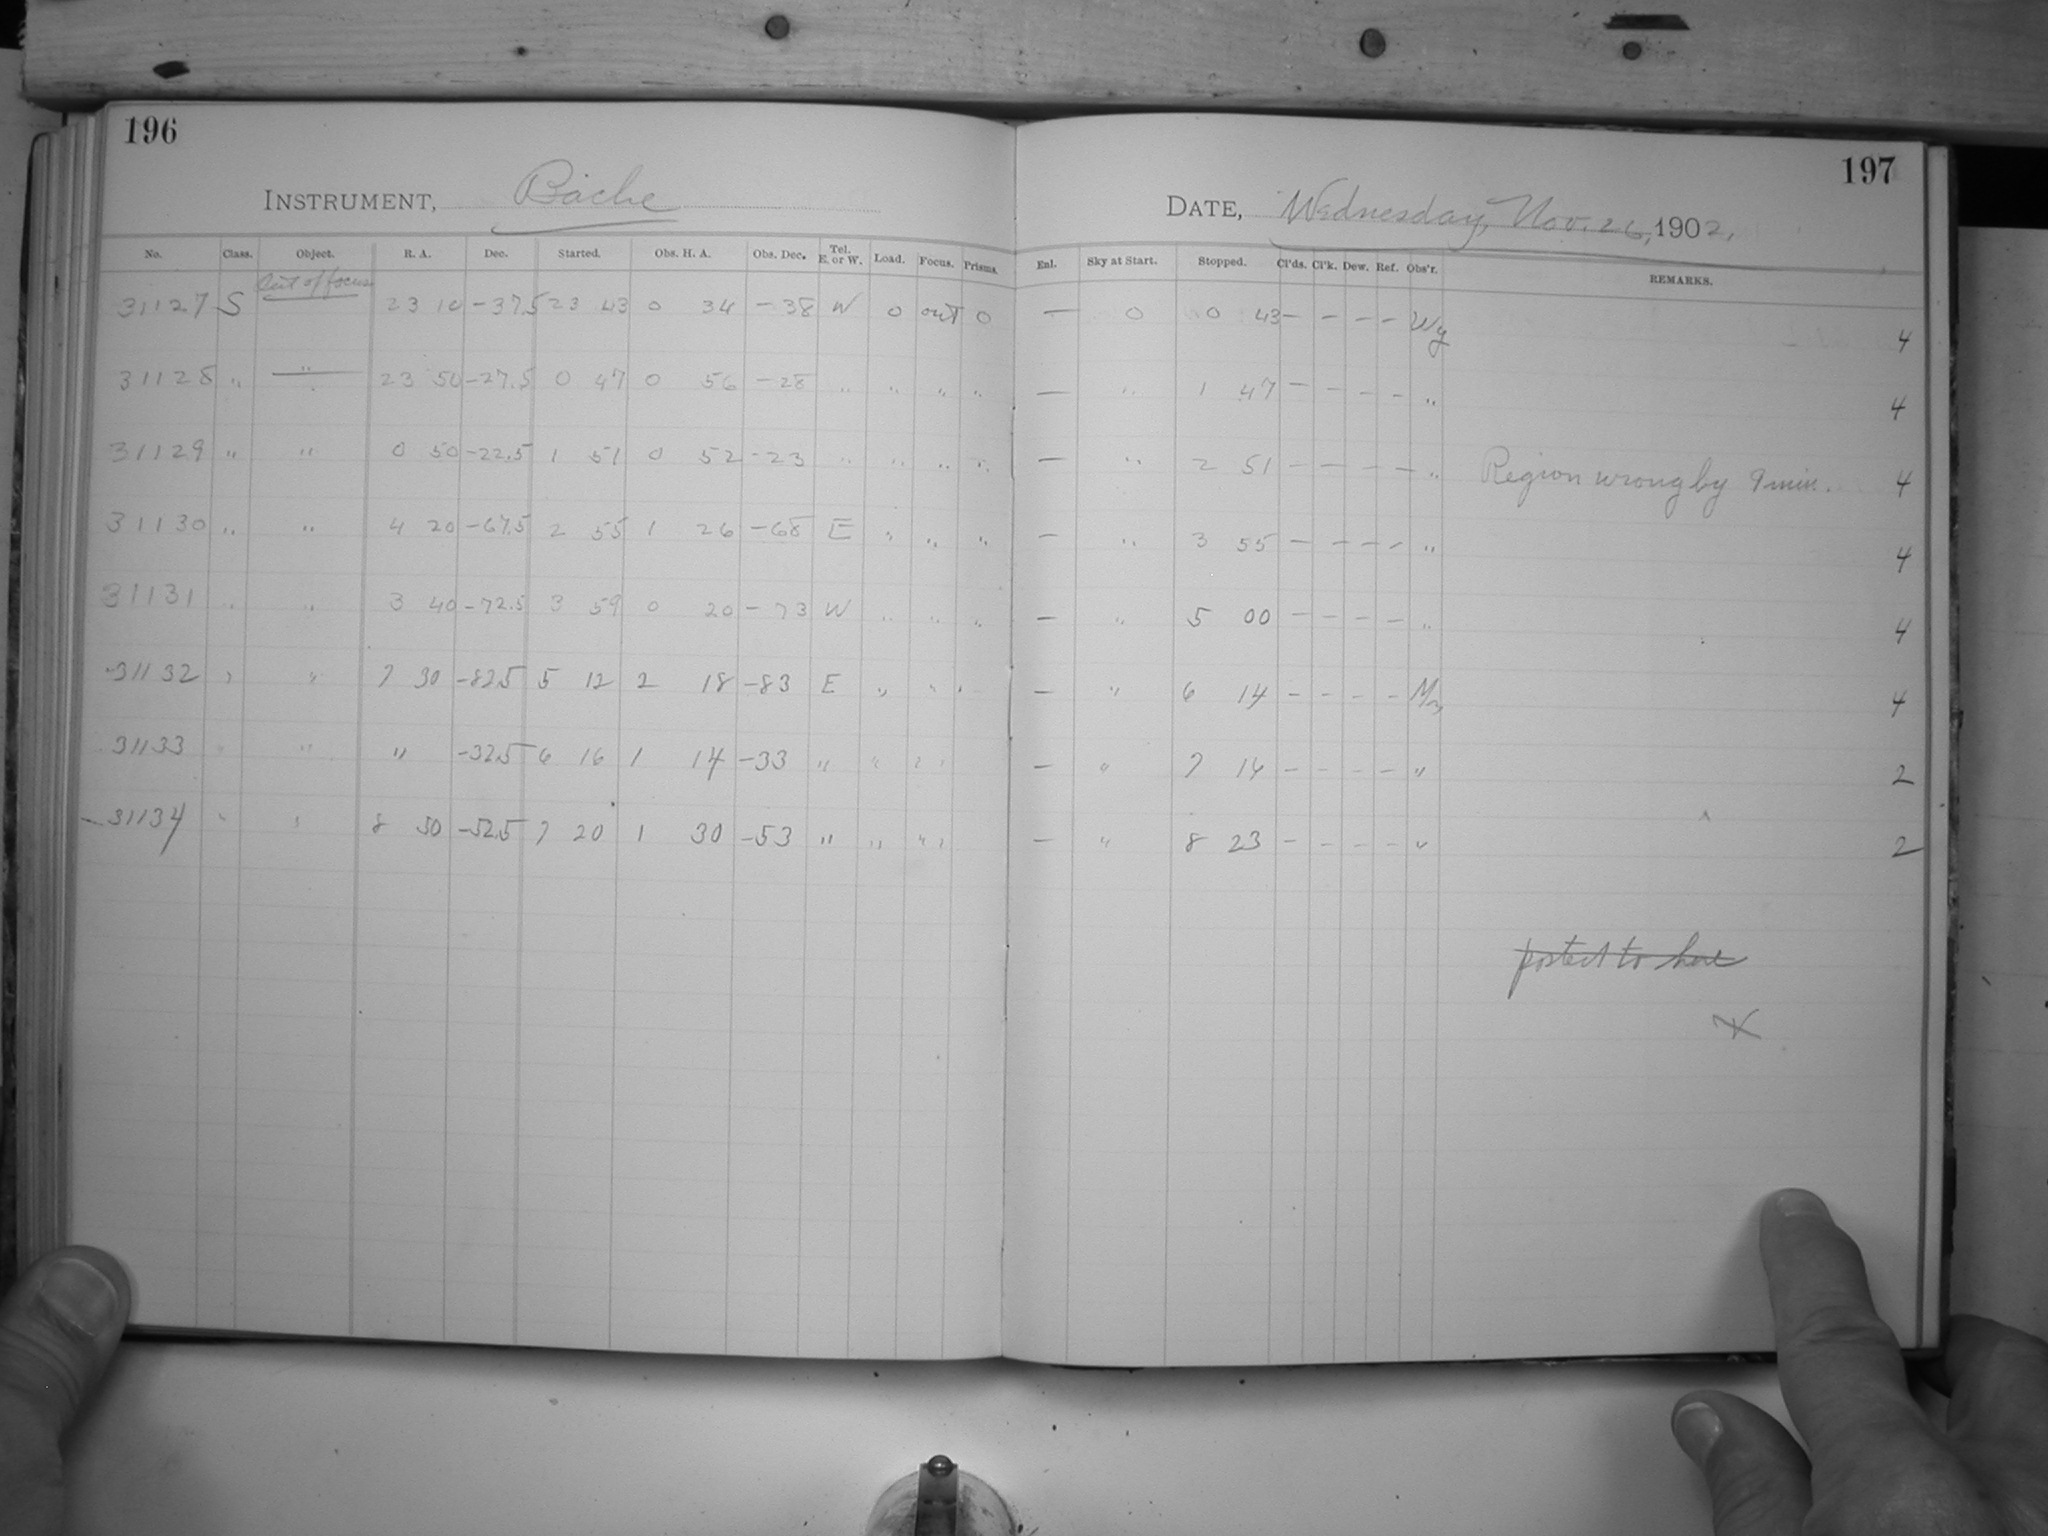 196
197
INSTRUMENT, Bache
DATE, Wednesday, Nov. 26, 1902.
No. Class. Object. R. A. Dec. Started. Obs. H. A. Obs. Dec. Tel. E. or W. Load. Focus. Prisms. Enl. Sky at Start. Stopped. Cl'ds. Cl'k. Dew. Ref. Obs'r. REMARKS.
Out of focus
31127 S 23 10 -37.5 23 43 0 34 -38 W 0 out 0 — 0 0 43 - - - - Wy 4
31128 " " 23 50 -27.5 0 47 0 56 -28 " " " " — " 1 47 - - - - " 4
31129 " " 0 50 -22.5 1 51 0 52 -23 " " " " — " 2 51 - - - - " Region wrong by 9 min. 4
31130 " " 4 20 -67.5 2 55 1 26 -68 E " " " — " 3 55 - - - - " 4
31131 " " 3 40 -72.5 3 59 0 20 -73 W " " " — " 5 00 - - - - " 4
31132 " " 7 30 -82.5 5 12 2 18 -83 E " " " — " 6 14 - - - - 4
31133 " " " -32.5 6 16 1 14 -33 " " " " — " 7 14 - - - - " 2
31134 " " 8 50 -52.5 7 20 1 30 -53 " " " " — " 8 23 - - - - " 2
posted to here